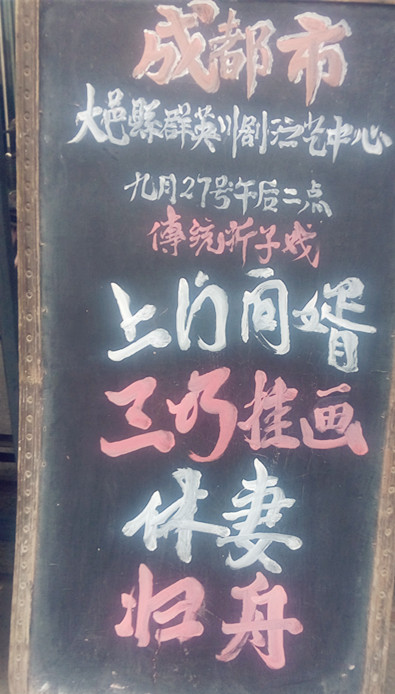 成都市
大邑縣群英川剧演艺中心
九月27号午后二点
傳统折子戏
上门问婿
三奶挂画
休妻
归舟